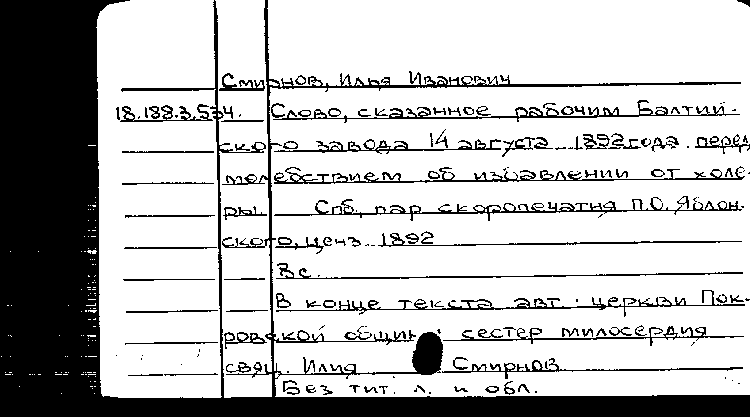 Смирнов, Илья Иванович
18.188.3.534. Слово, сказанное рабочим Балтий-
ского завода 14 августа 1892 года перед
молебствием об избавлении от холе-
ры. Спб, пар скоропечатня П.О. Яблон-
ского, ценз. 1892
8 с.
В конце текста авт.: церкви Пок-
ровской общины сестер милосердия
свящ. Илия Смирнов
Без тит. л. и обл.